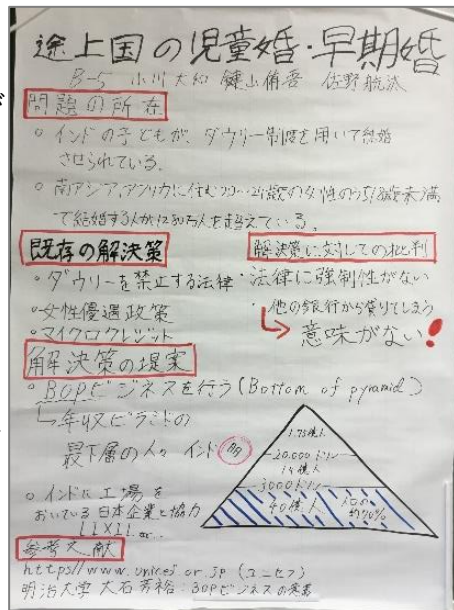 途上国の児童婚・早期婚
B-5 小川大和 鍵山侑吾 佐野
問題の所在
○インドの子どもが、ダウリー制度を用いて結婚
させられている。
○南アジア,アフリカに住む20~24歳の女性のうち18歳未満
で結婚する人が 万人を超えている。
既存の解決策
・ダウリーを禁止する法律
・女性優遇政策
・マイクロクレジット
解決策に対しての批判
・法律に強制性がない
・他の銀行から借りてしまう
意味がない!
解決策の提案
○BOPビジネスを行う(Bottom of pyramid)
年収ピラミッドの
最下層の人々 インド
1.75億人
20,000ドル
14億人
3000ドル
40億人
人口の
約70%
○インドに工場を
おいている日本企業と協力
LIXIL
参考文献
https//www.unicef or.jp (ユニセフ)
明治大学 大石芳裕:BOPビジネスの